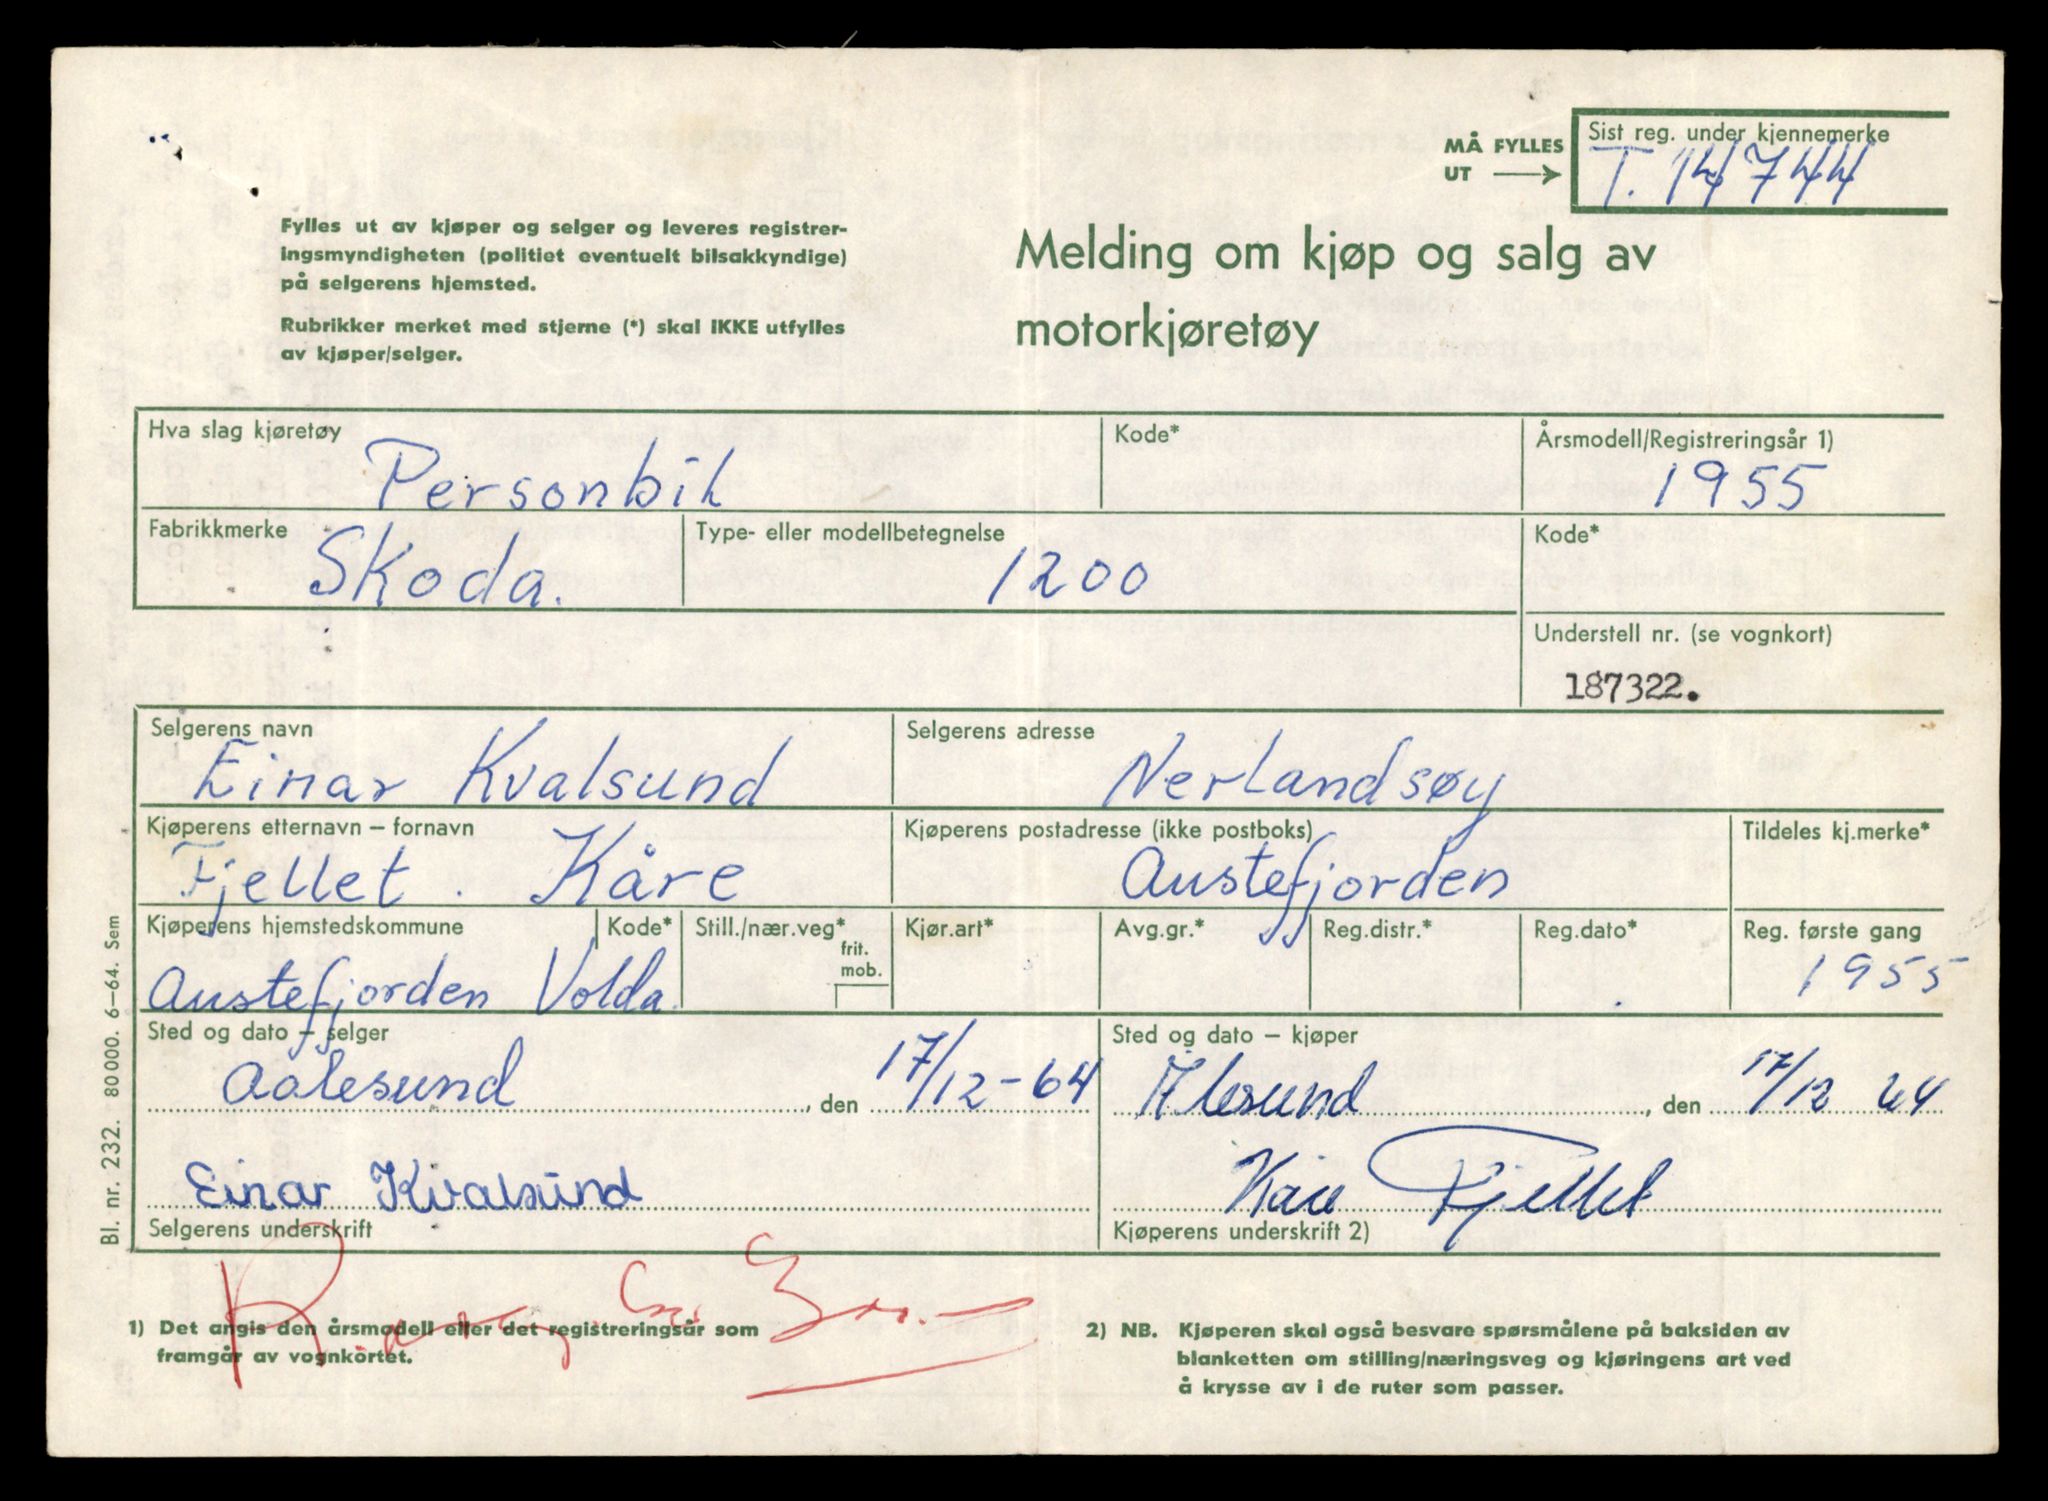 MÅ FYLLES UT →
Sist reg. under kjennemerke
T. 14744
Fylles ut av kjøper og selger og leveres registrer-
ingsmyndigheten (politiet eventuelt bilsakkyndige)
på selgerens hjemsted.
Rubrikker merket med stjerne (*) skal IKKE utfylles
av kjøper/selger.
Melding om kjøp og salg av
motorkjøretøy
Hva slag kjøretøy
Personbil
Kode*
Årsmodell/Registreringsår 1)
1955
Fabrikkmerke
Skoda.
Type- eller modellbetegnelse
1200
Kode*
Understell nr. (se vognkort)
187322.
Selgerens navn
Einar Kvalsund
Selgerens adresse
Nerlandsøy
Kjøperens etternavn – fornavn
Fjellet . Kåre
Kjøperens postadresse (ikke postboks)
Austefjorden
Tildeles kj.merke*
Kjøperens hjemstedskommune
Austefjorden Volda.
Kode*
Still./nær.veg*
frit.
mob.
Kjør.art*
Avg.gr.*
Reg.distr.*
Reg.dato*
Reg. første gang
1955
Sted og dato – selger
Aalesund, den 17/12-64
Sted og dato – kjøper
Ålesund, den 17/12 64
Einar Kvalsund
Selgerens underskrift
Kåre Fjellet
Kjøperens underskrift 2)
1) Det angis den årsmodell eller det registreringsår som
framgår av vognkortet.
2) NB. Kjøperen skal også besvare spørsmålene på baksiden av
blanketten om stilling/næringsveg og kjøringens art ved
å krysse av i de ruter som passer.
Bl. nr. 232. 80 000. 6–64. Sem